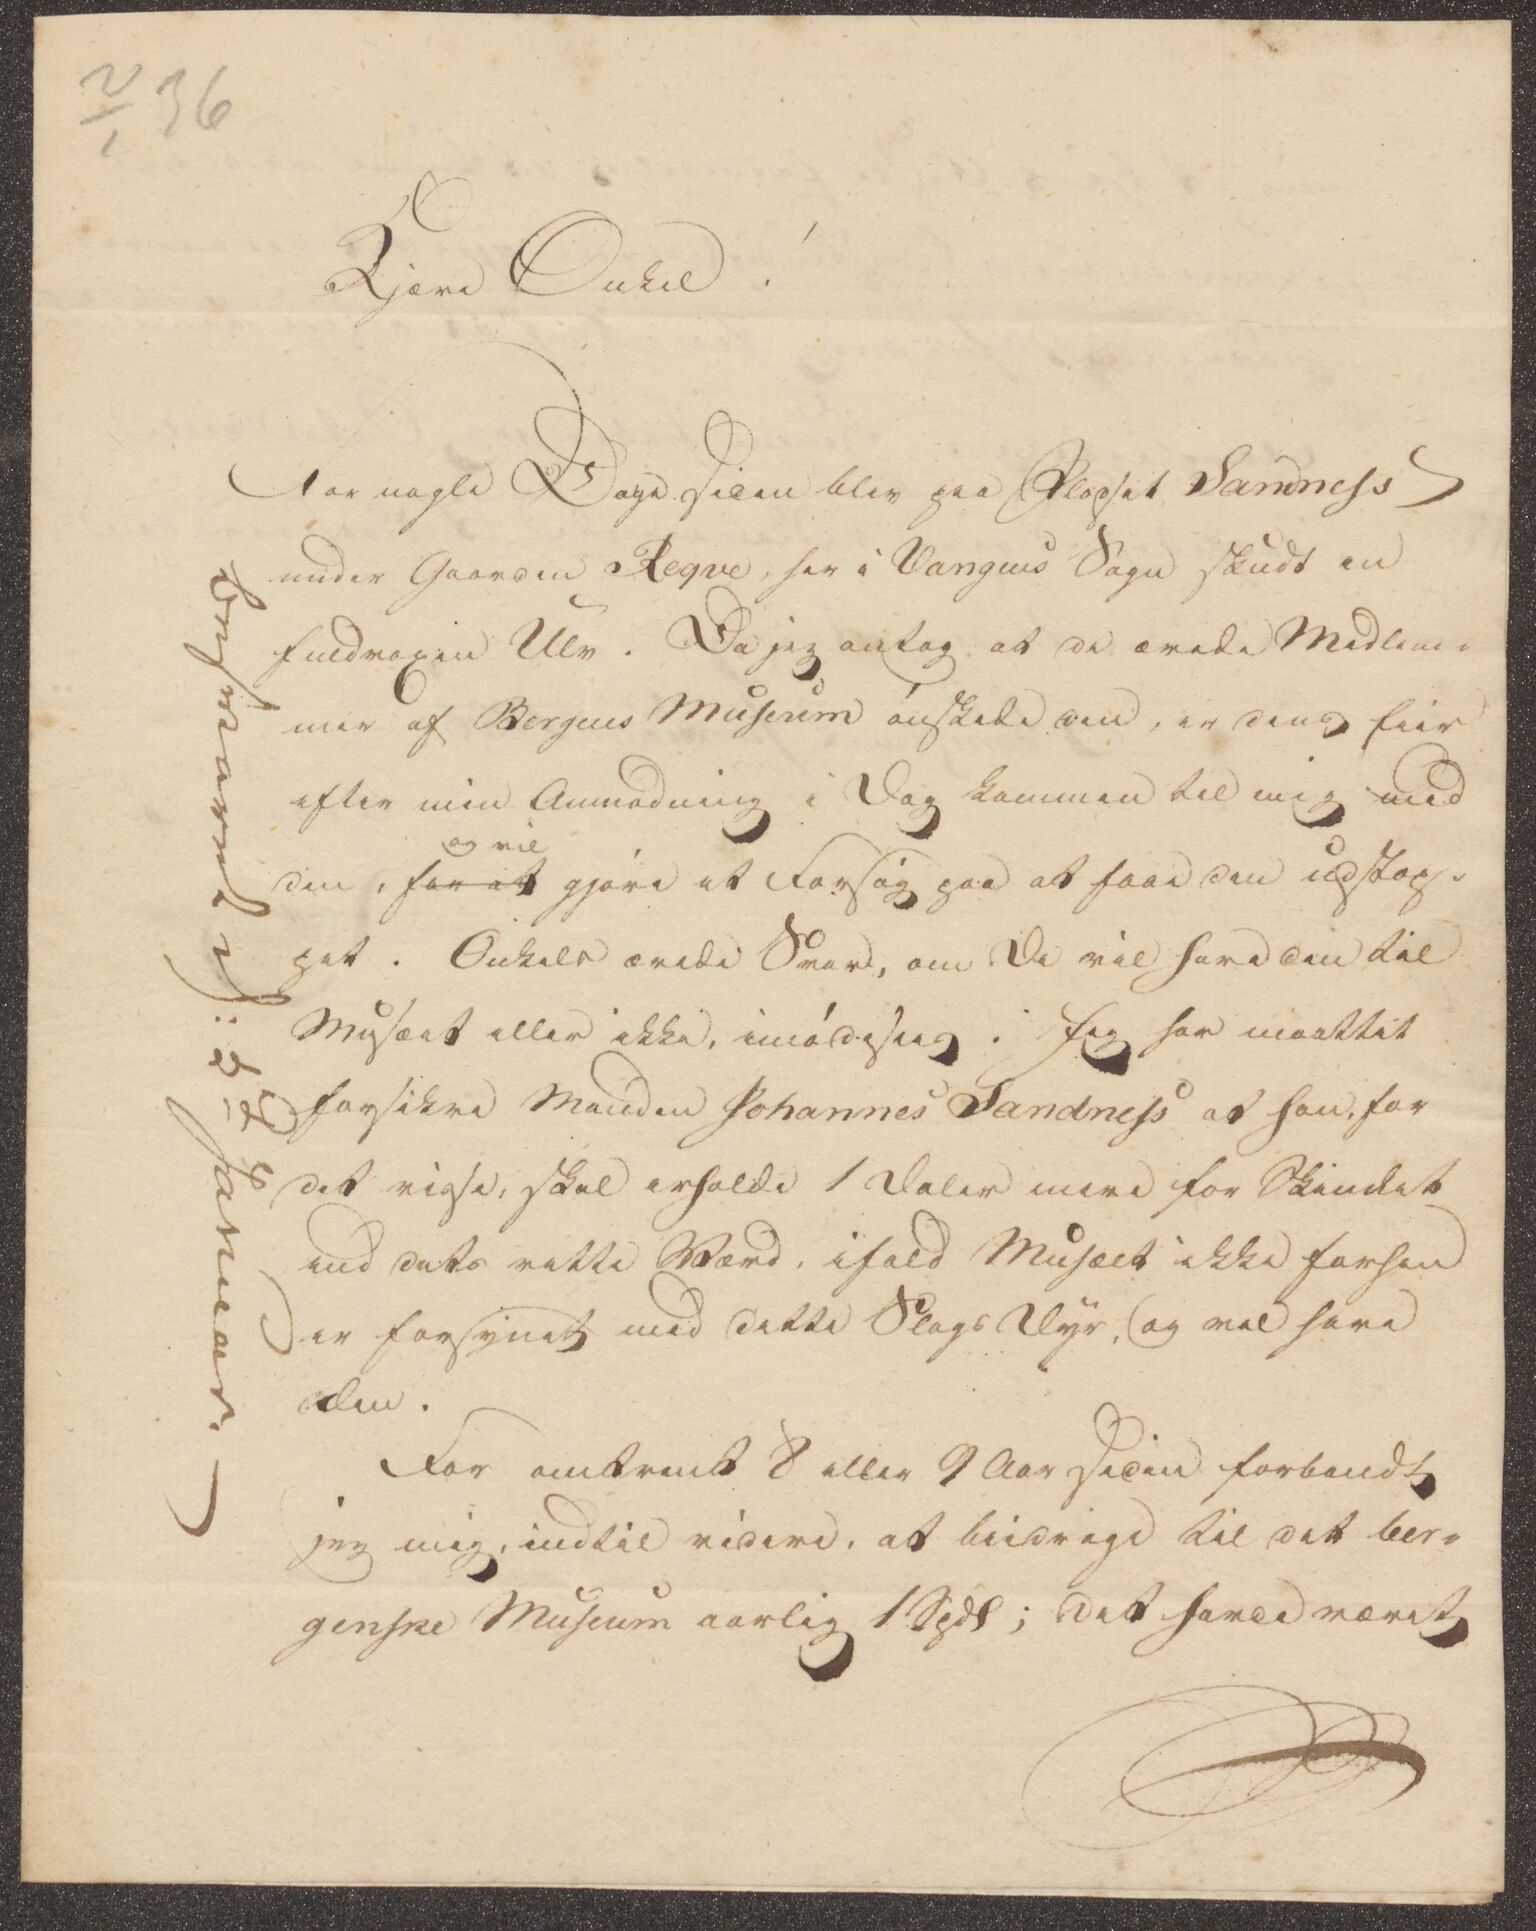 2/1 36
Kjære Onkel!
For nogle Dage siden blev paa Pladset Sandness
under Gaarden Reqve, her i Vangens Sogn skudt en
fuldvoxen Ulv. Da jeg antog at de ærede Medlem-
mer af Bergens Museum önskede den, er dens Eier
efter min Anmodning i Dag kommen til mig med
den, og vil gjöre et Forsög paa at faae den udstop-
pet. Onkels ærede Svar, om De vil have den til
Musæet eller ikke, imödesees. Jeg har maattet
forsikre Manden Johannes Sandness at han, for
det visse, skal erholde 1 Daler mere for Skindet
end dets rette Værd, ifald Musæet ikke forhen
er forsynet med dette Slags Dyr, og vil have
den.
For omtrent 8 eller 9 Aar siden forbandt
jeg mig, indtil videre, at bidrage til det ber-
genske Museum aarlig 1 Spdl; det havde været
Besvaret d: Januar